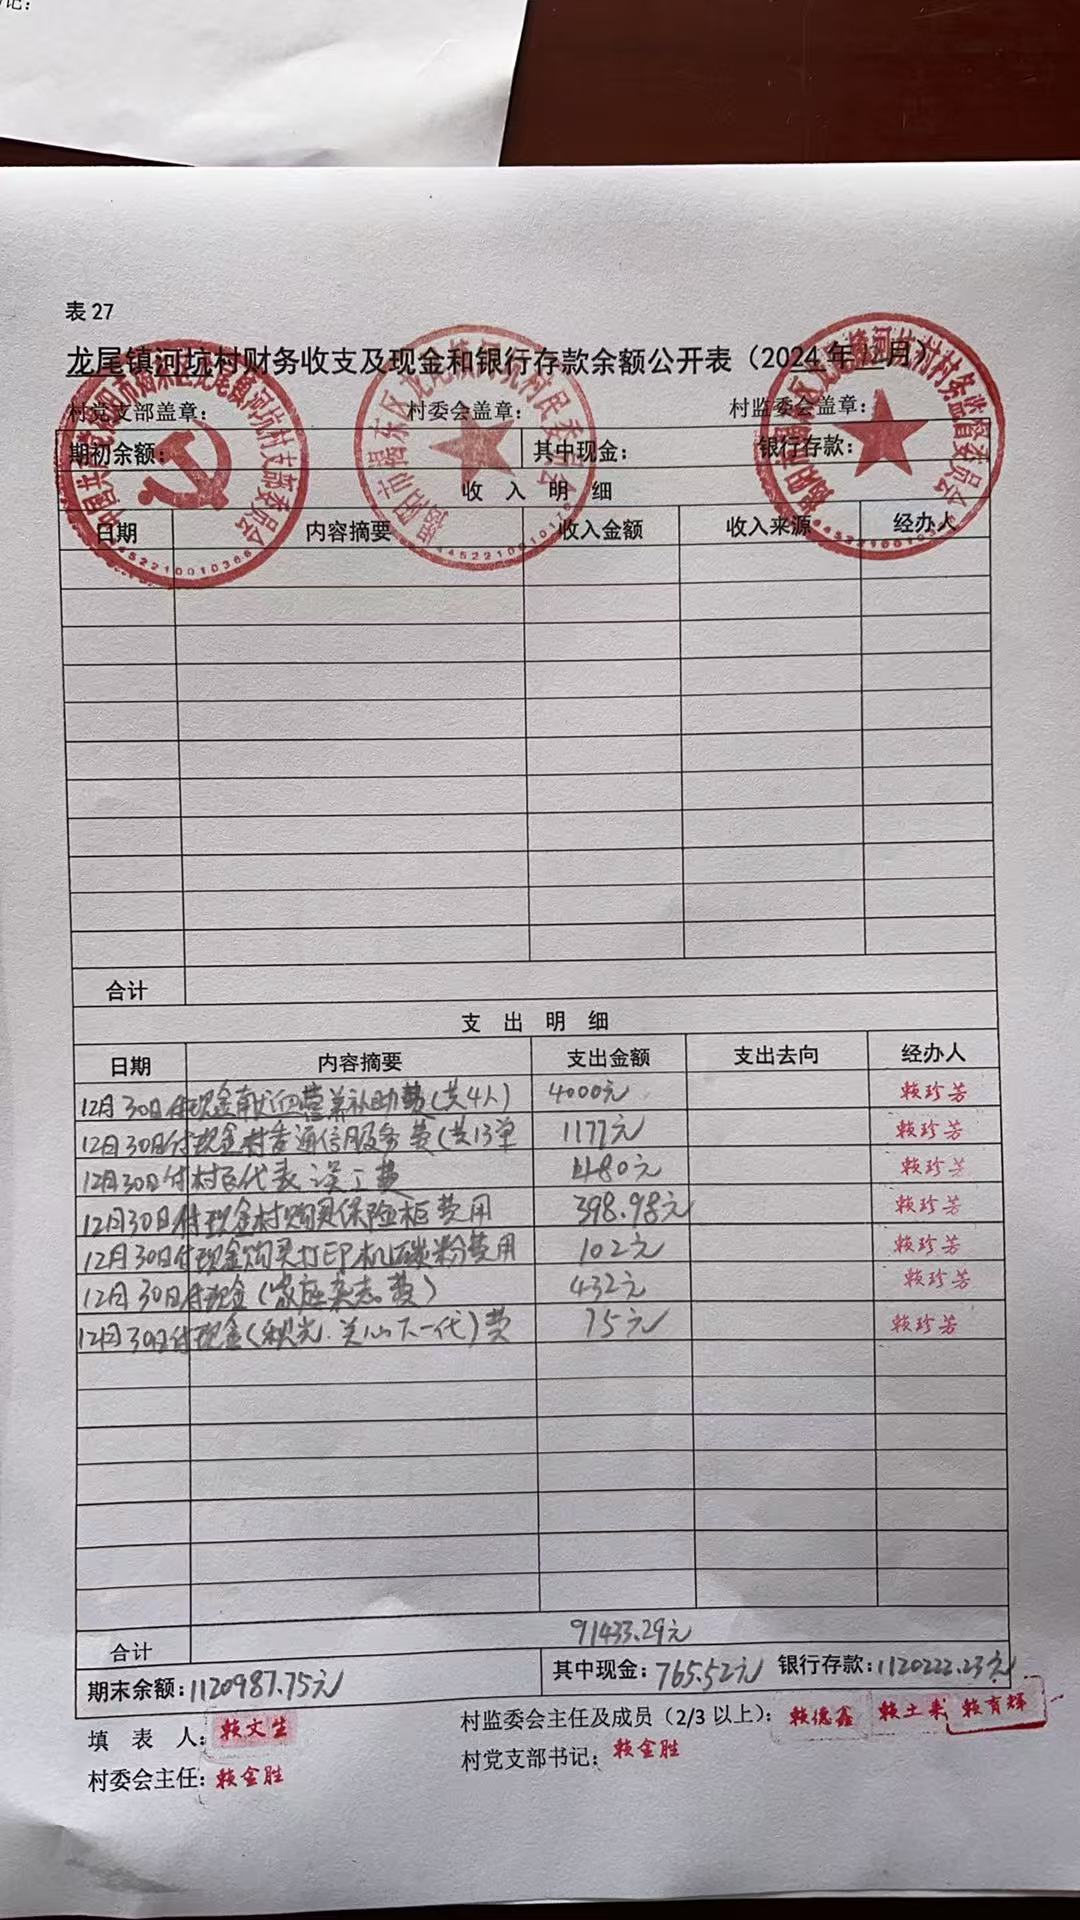 记：
表 27
龙尾镇河坑村财务收支及现金和银行存款余额公开表（2024 年 12月）
村党支部盖章： 村委会盖章： 村监委会盖章：
期初余额： 其中现金： 银行存款：
收 入 明 细
日期 内容摘要 收入金额 收入来源 经办人
合计
支 出 明 细
日期 内容摘要 支出金额 支出去向 经办人
12月30日付现金献血营养补助费(共4人) 4000元 赖珍芳
12月30日付现金村告通信服务费(共13单 1177元 赖珍芳
12月30日付村民代表误工费 480元 赖珍芳
12月30日付现金村购买保险柜费用 398.98元 赖珍芳
12月30日付现金购买打印机碳粉费用 102元 赖珍芳
12月30日付现金(家庭杂志费) 432元 赖珍芳
12月30日付现金(秋光.关心下一代)费 75元 赖珍芳
合计 91433.29元
期末余额:1120987.75元 其中现金:765.52元 银行存款:1120222.23元
填 表 人: 赖文生 村监委会主任及成员（2/3 以上）: 赖德鑫 赖土来 赖育辉
村委会主任: 赖金胜 村党支部书记: 赖金胜